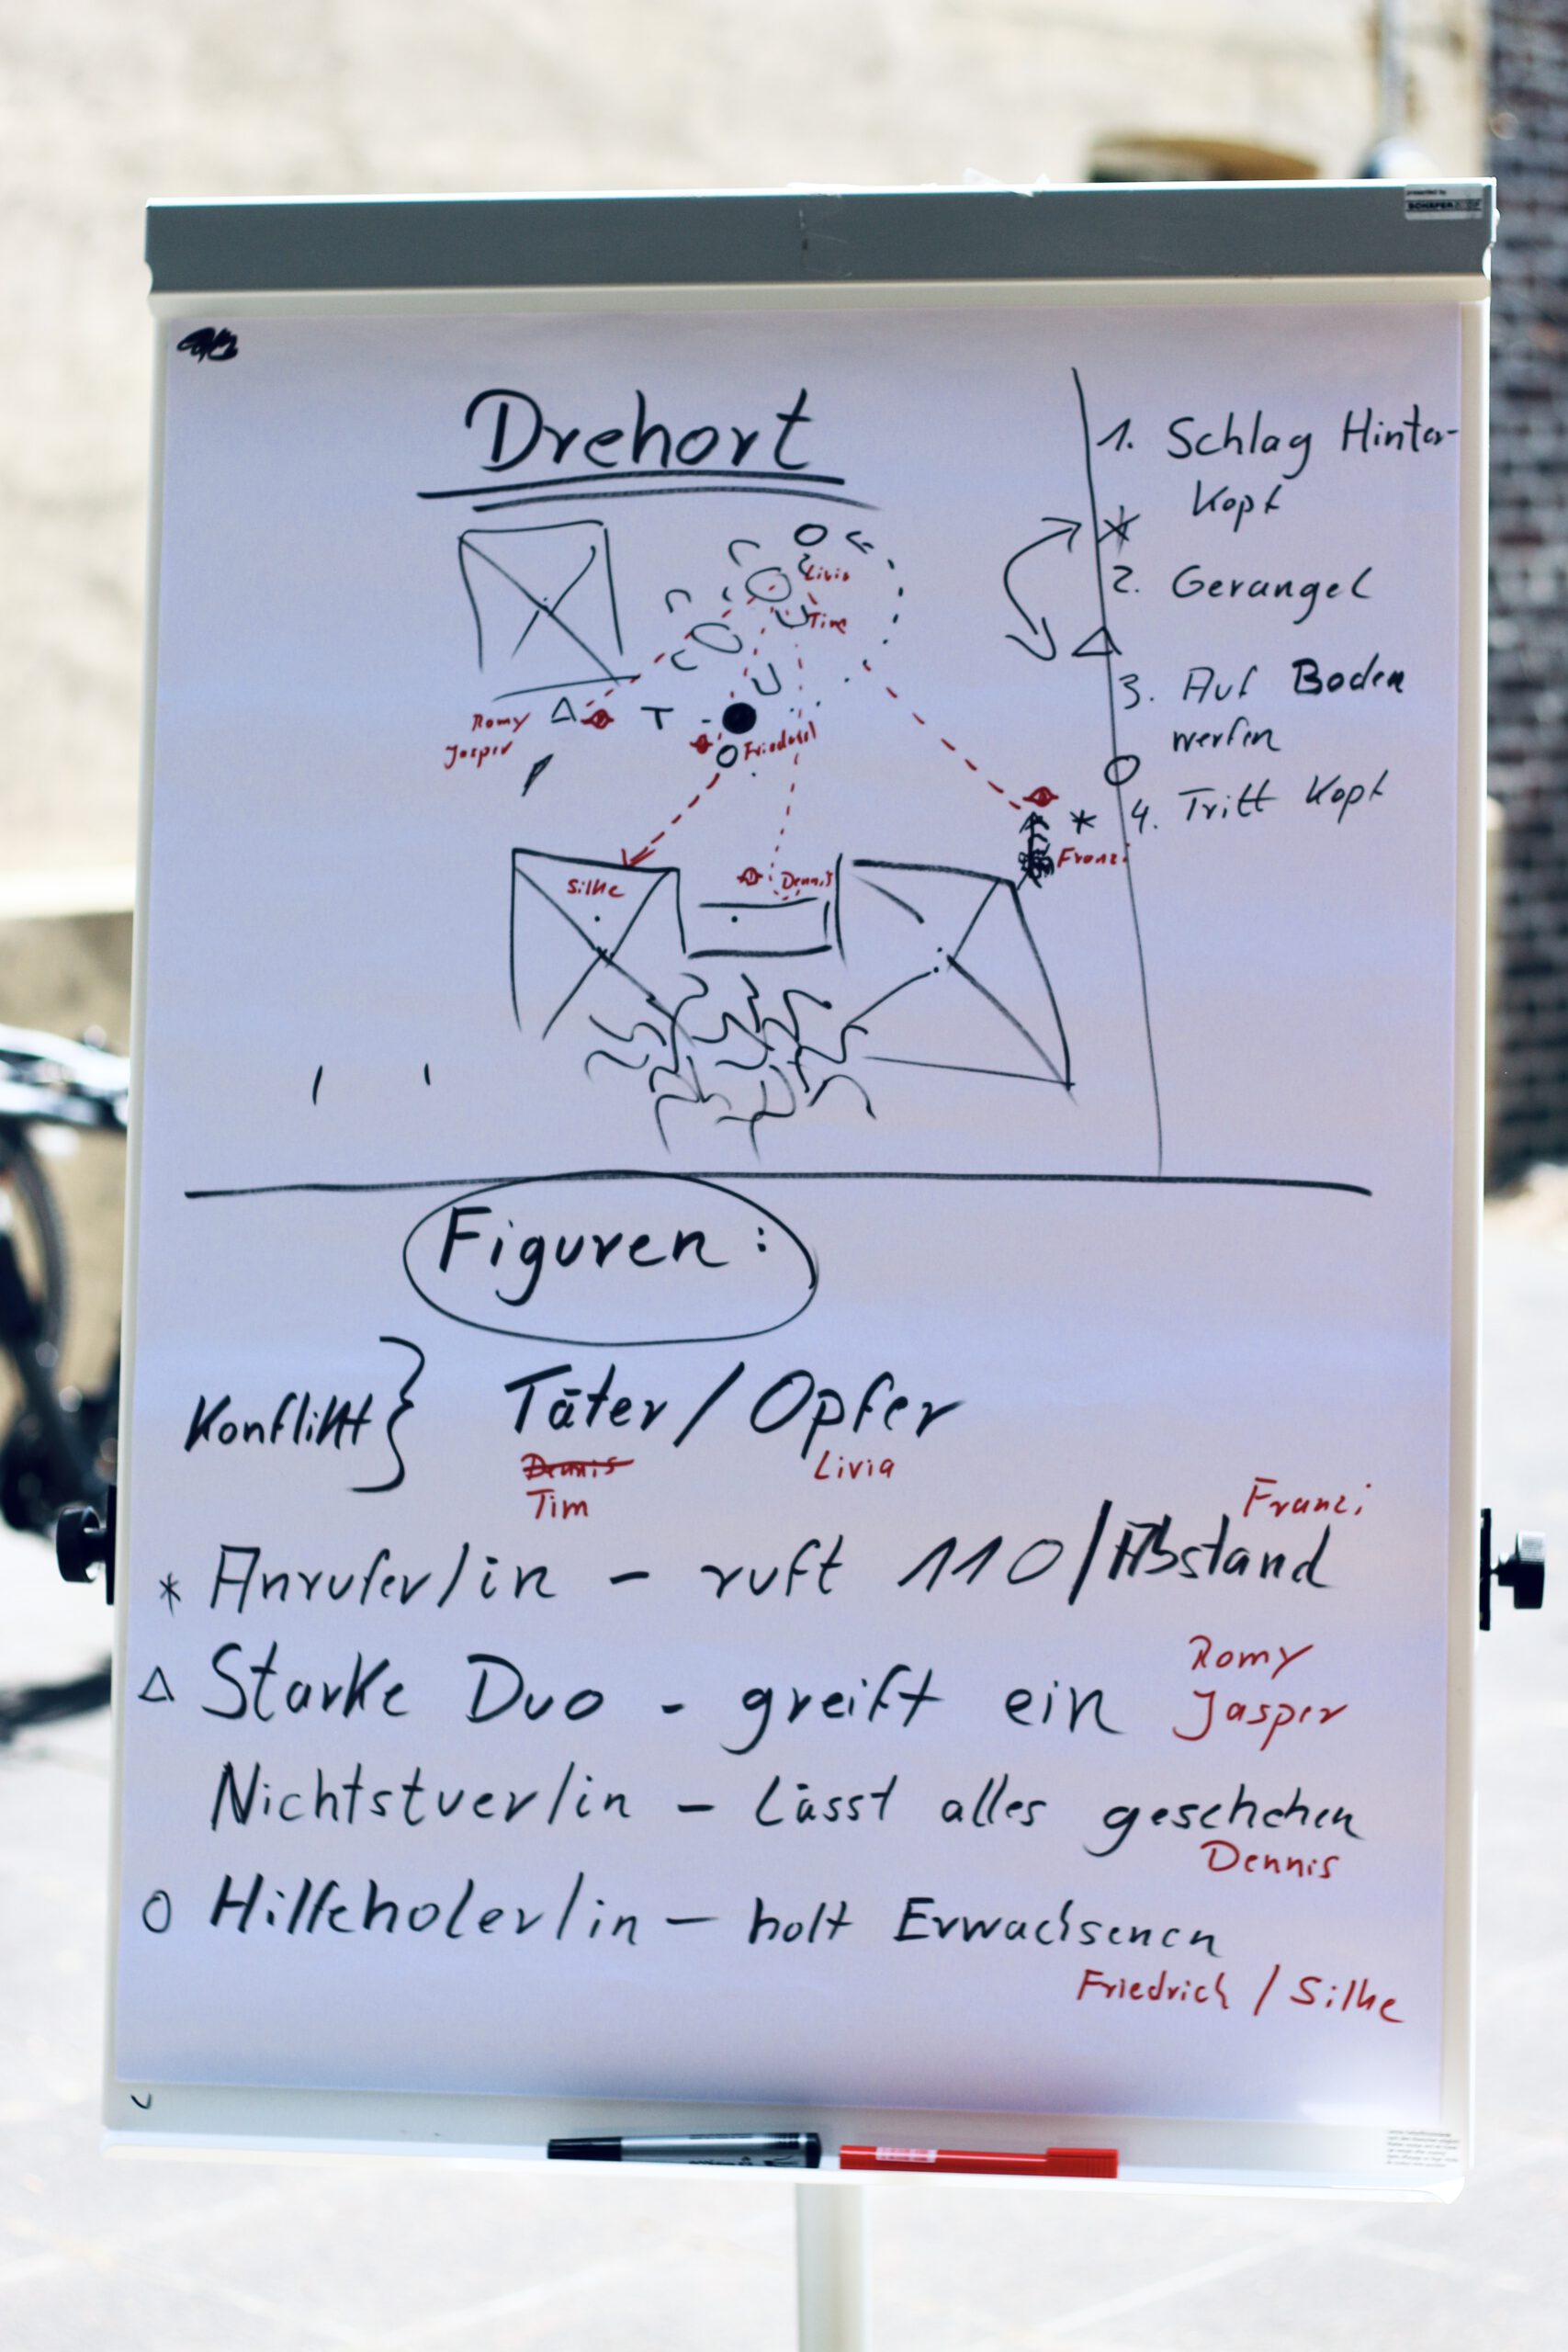 Drehort
1. Schlag Hinter-
Kopf
2. Gerangel
3. Auf Boden
werfen
4. Tritt Kopf
Livia
Tim
Romy
Jasper
T
Silke
Dennis
Franzi
Figuren:
Konflikt } Täter / Opfer
Dennis Livia
Tim
Franzi
* Anrufer/in – ruft 110/Abstand
Romy
△ Starke Duo - greift ein
Jasper
Nichtstuer/in – Lässt alles geschehen
Dennis
O Hilfeholer/in – holt Erwachsenen
Friedrich / Silke